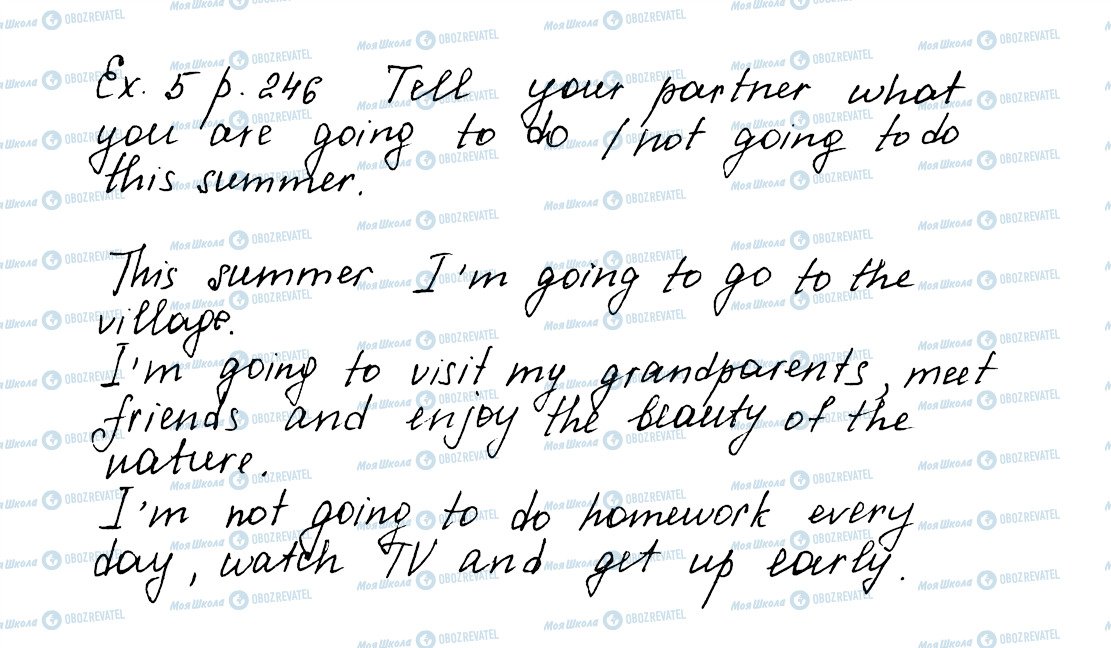 Ex. 5 p. 246 Tell your partner what
you are going to do / not going to do
this summer.
This summer I'm going to go to the
village.
I'm going to visit my grandparents, meet
friends and enjoy the beauty of the
nature.
I'm not going to do homework every
day, watch TV and get up early.